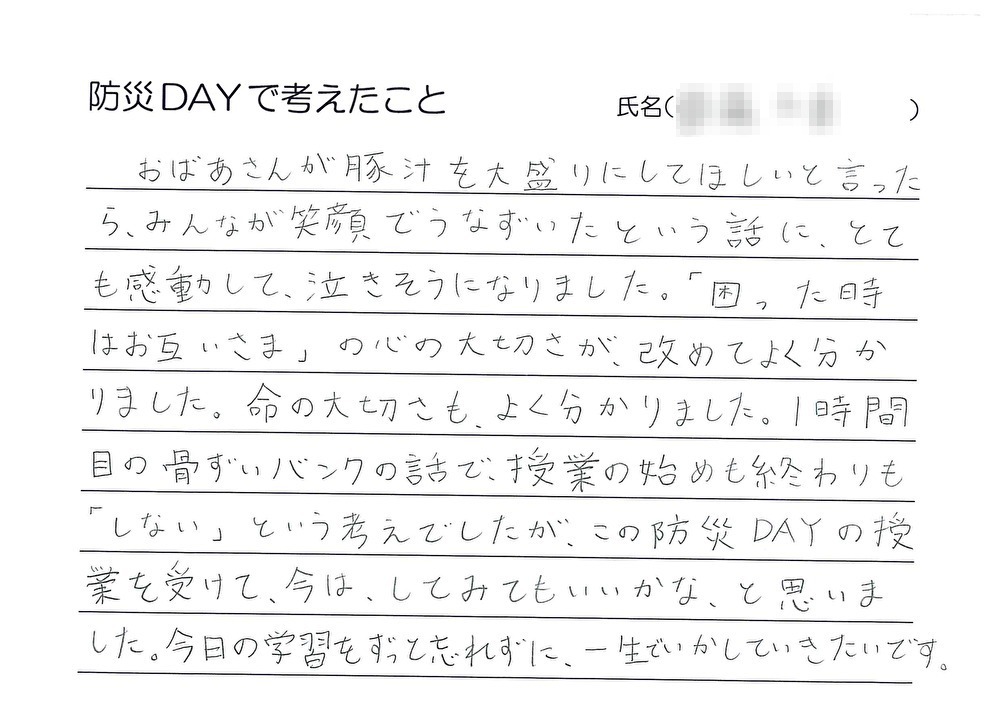 防災DAYで考えたこと
氏名( )
おばあさんが豚汁を大盛りにしてほしいと言った
ら、みんなが笑顔でうなずいたという話に、とて
も感動して、泣きそうになりました。「困った時
はお互いさま」の心の大切さが、改めてよく分か
りました。命の大切さも、よく分かりました。1時間
目の骨ずいバンクの話で、授業の始めも終わりも
「しない」という考えでしたが、この防災DAYの授
業を受けて、今は、してみてもいいかな、と思いま
した。今日の学習をずっと忘れずに、一生でいかしていきたいです。